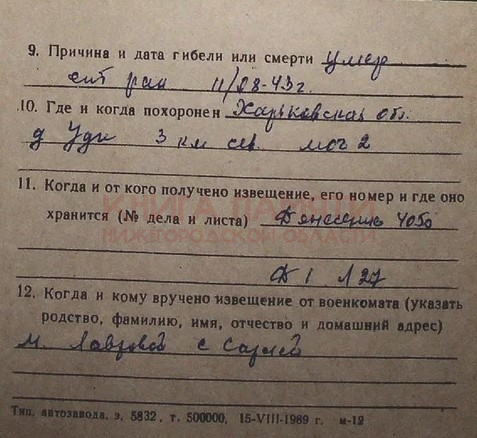 9. Причина и дата гибели или смерти умер
от ран 11/08-43г.
10. Где и когда похоронен Харьковская обл.
д Уды 3 км сев. мог 2
11. Когда и от кого получено извещение, его номер и где оно
хранится (№ дела и листа) Донесение 4050
КНИГА ПАМЯТИ
НИЖЕГОРОДСКОЙ ОБЛАСТИ
Д 1 л 27
12. Когда и кому вручено извещение от военкомата (указать
родство, фамилию, имя, отчество и домашний адрес)
м. Лавровой с
Тип. автозавода, з. 5832, т. 500000, 15-VIII-1989 г. м-12